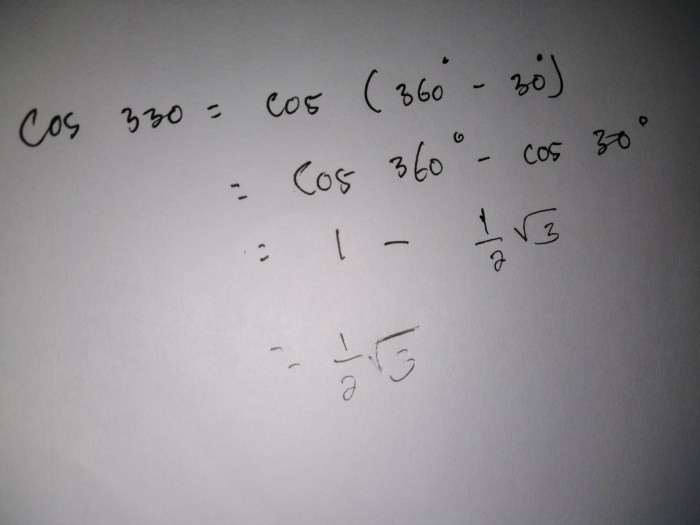 Cos 330 = cos (360° - 30°)
= Cos 360° - cos 30°
= 1 - 1/2 √3
= 1/2 √3